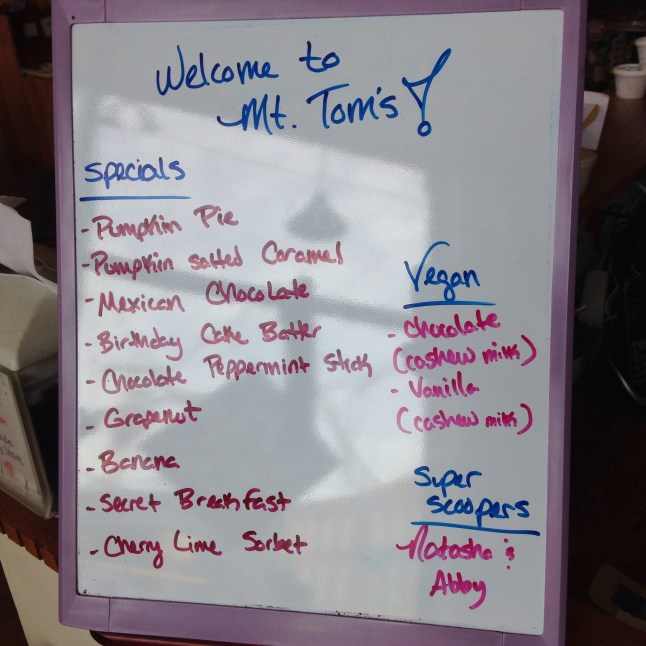 Welcome to
Mt. Tom's!
Specials
- Pumpkin Pie
- Pumpkin salted Caramel
- Mexican Chocolate
- Birthday Cake Batter
- Chocolate Peppermint Stick
- Grapenut
- Banana
- Secret Breakfast
- Cherry Lime Sorbet
Vegan
- chocolate
(cashew milk)
- Vanilla
(cashew milk)
Super
Scoopers
Natasha &
Abby